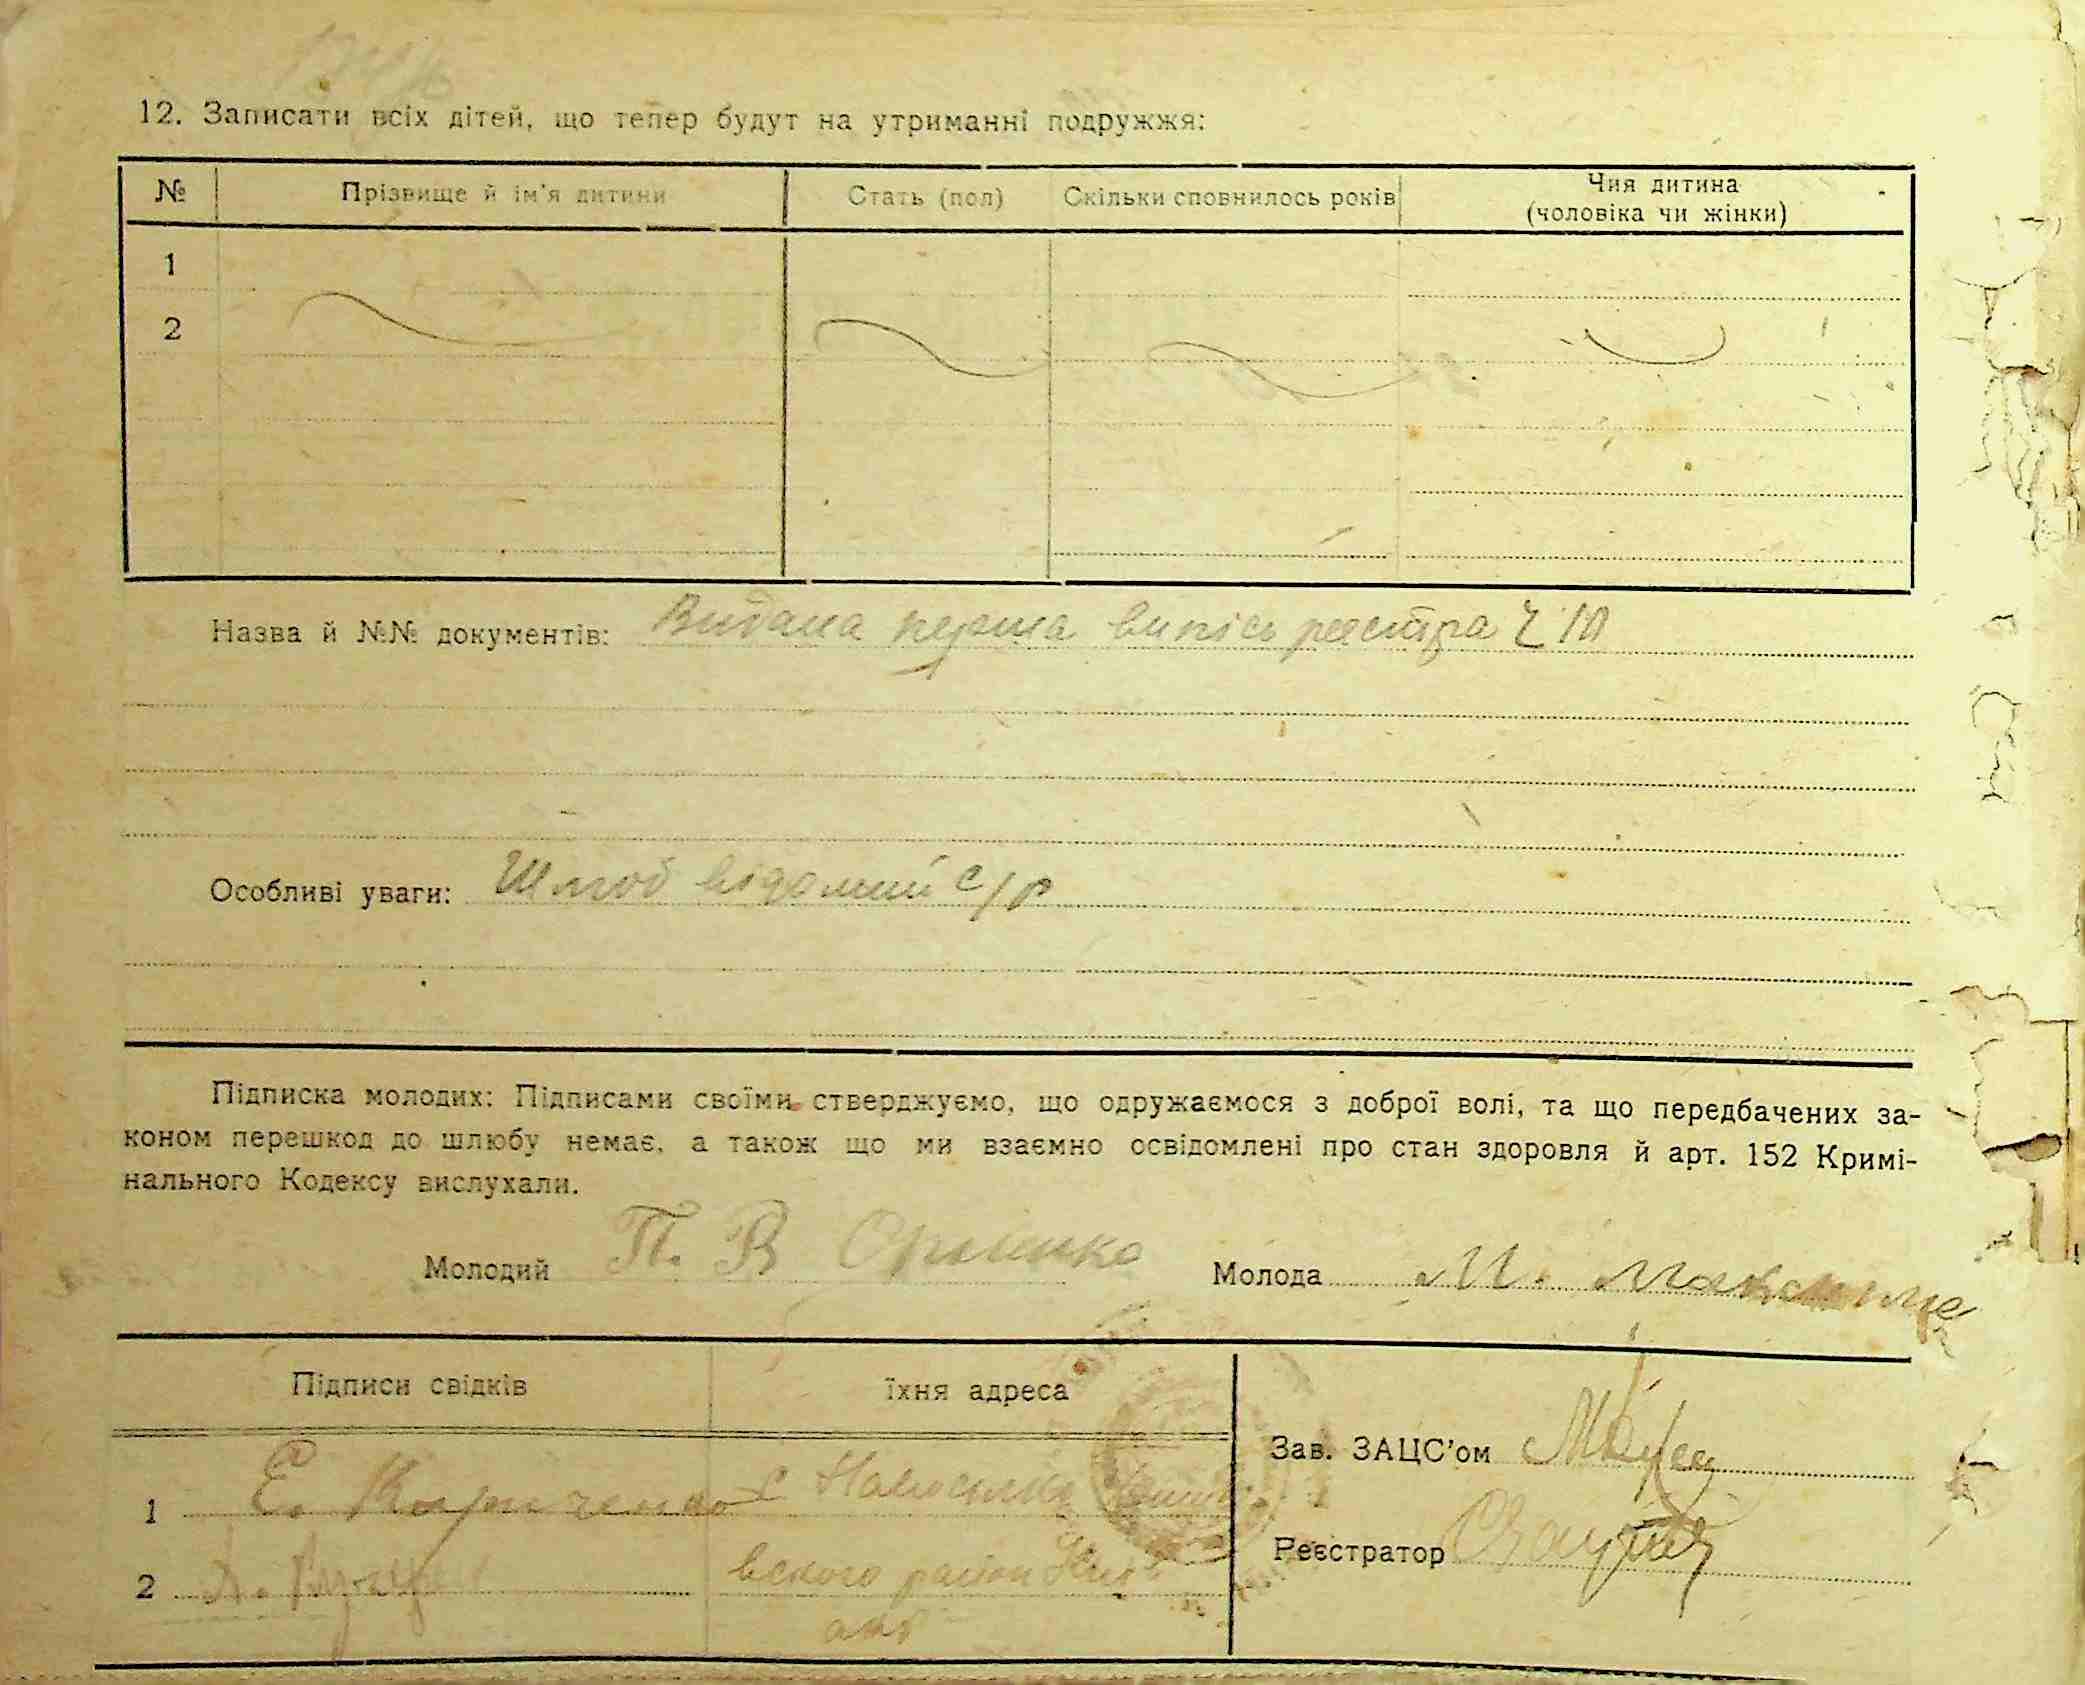 12. Записати всіх дітей, що тепер будут на утриманні подружжя:
№ Прізвище й ім'я дитини Стать (пол) Скільки сповнилось років Чия дитина (чоловіка чи жінки)
1
2
Назва й №№ документів: Видана перша випісь реєстра Ч 10
Особливі уваги: Шлюб відомий с/р
Підписка молодих: Підписами своїми стверджуємо, що одружаємося з доброї волі, та що передбачених за-
коном перешкод до шлюбу немає, а також що ми взаємно освідомлені про стан здоровля й арт. 152 Кримі-
нального Кодексу вислухали.
Молодий П. В Молода М.
Підписи свідків їхня адреса
Зав. ЗАЦС'ом
1 Е. Кириченко с
Реєстратор
2 вского район